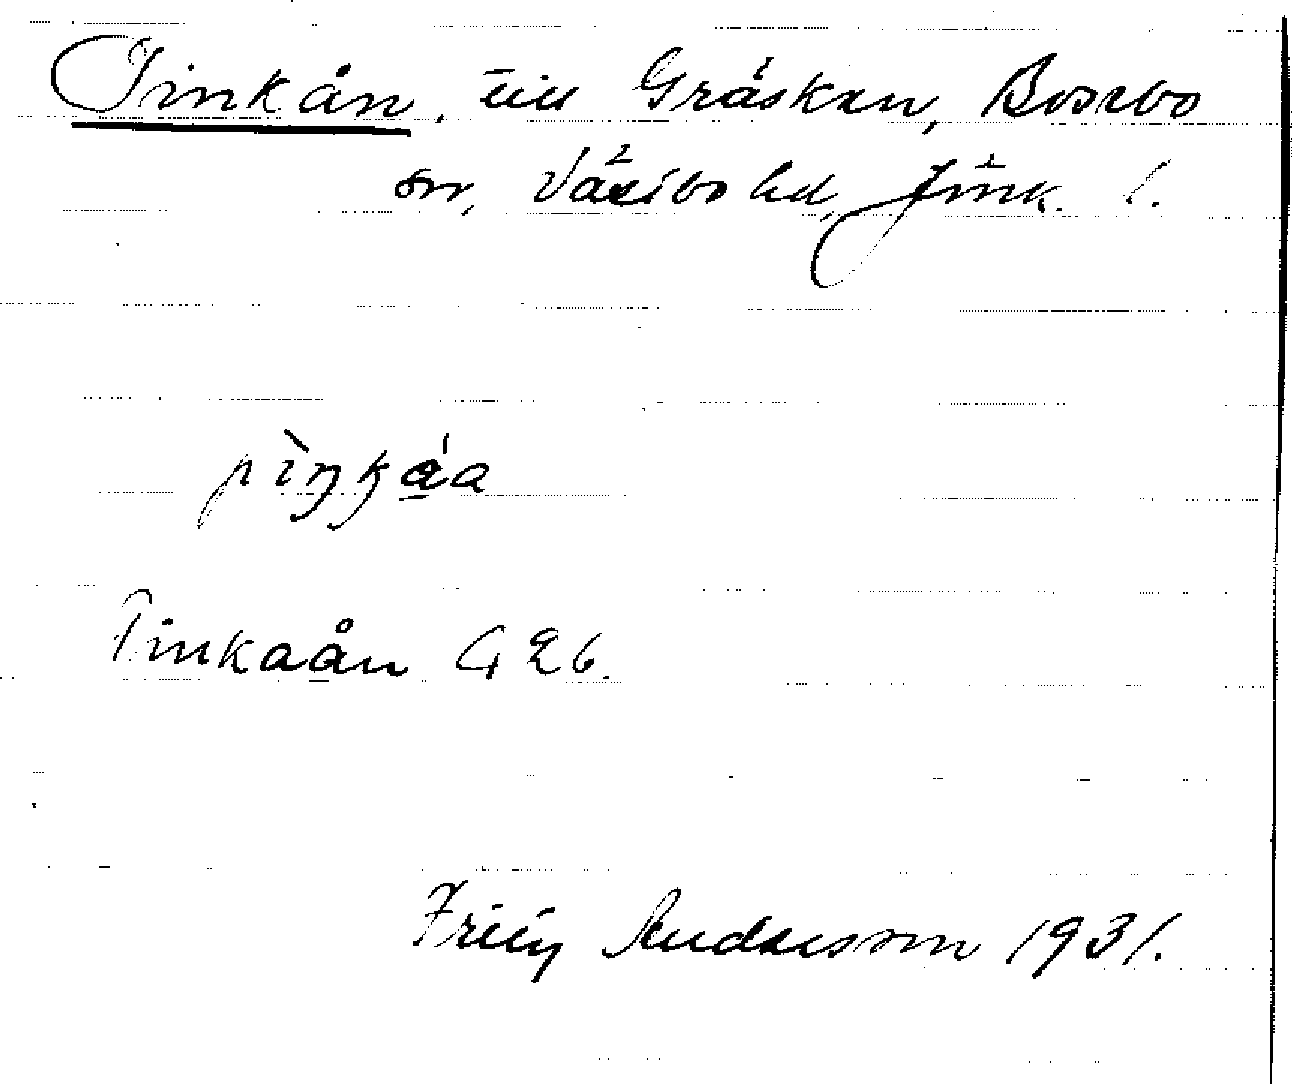 Pinkån, till Gräskan, Bosebo
sn, Västbo hd, Jönk. l.
pìŋkáa
Pinkaån G Ek 6.
Fritz Andersson 1931.